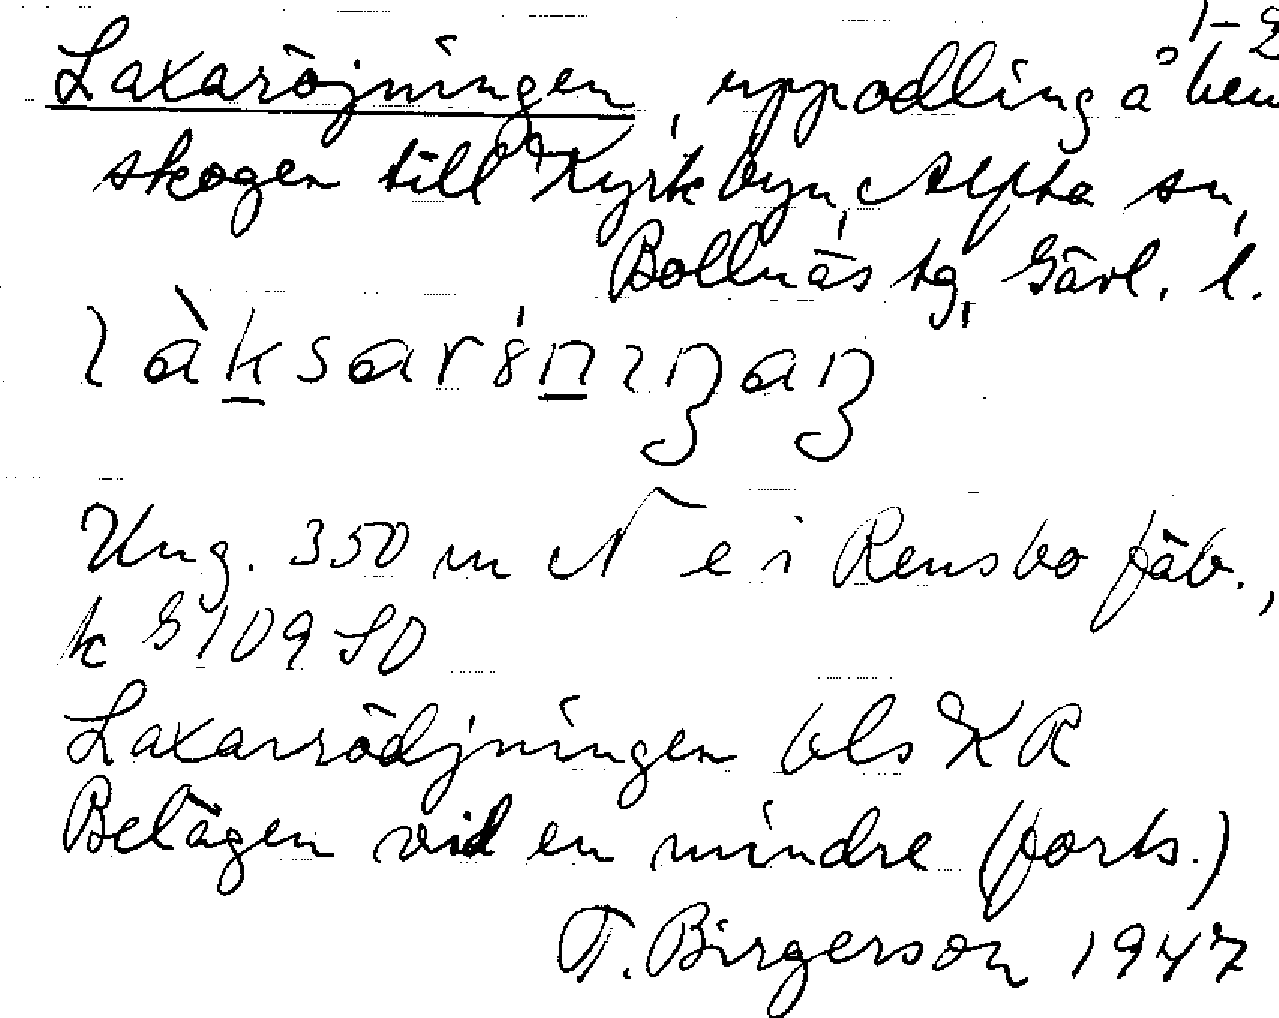 1-2
Laxaröjningen, uppodling å hem
skogen till Kyrkbyn, Alfta sn,
Bollnäs tg, Gävl. l.
Ung. 350 m N e i Rensbo fäb.,
k G 109 SO
Laxarrödjningen bls KR
Belägen vid en mindre (forts.)
T. Birgerson 1947